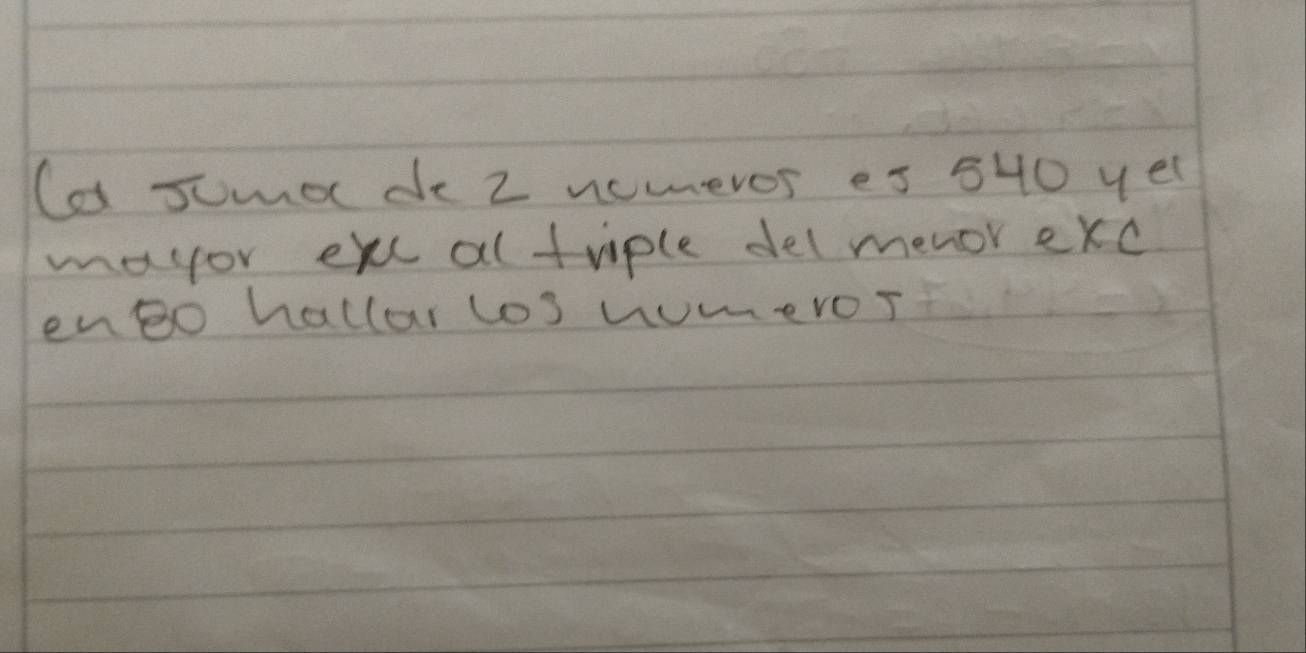 La suma de 2 numeros es 540 y el
mayor exc al triple del menor exc
en 80 hallar los numeros